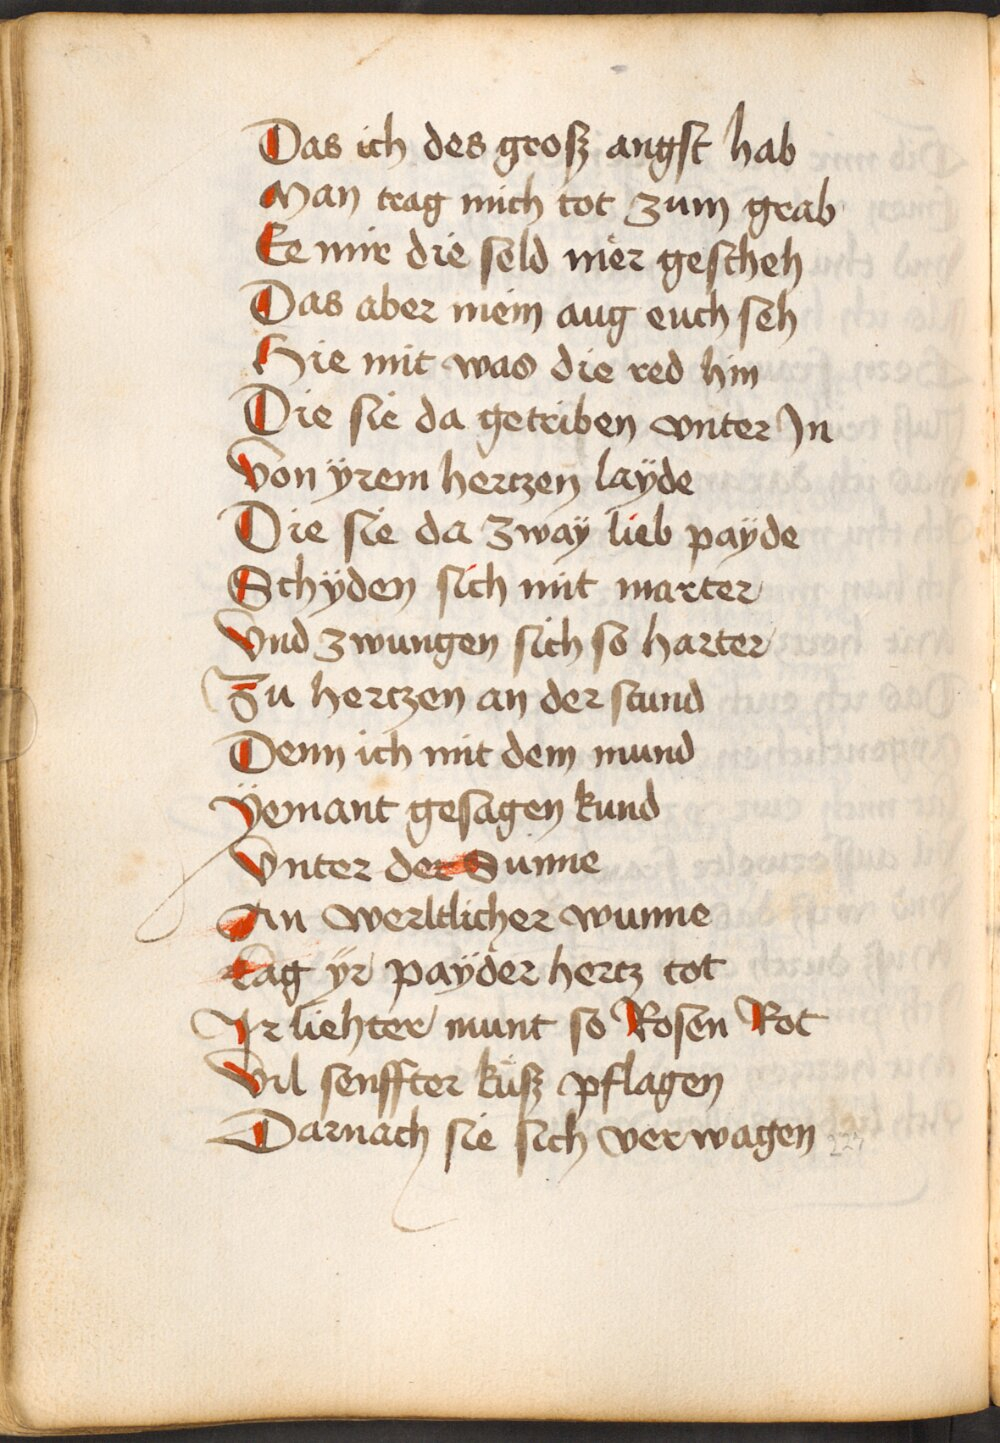 Das ich des grosz angst hab
Man trag mich tot zum grab
Ee mir die seld mer gescheh
Das aber mein aug euch seh
Hie mit was die red hin
Die sie da getriben vnter In
Von ÿrem hertzen laÿde
Die sie da zwaÿ lieb paÿde
Schÿden sich mit marter
Vnd zwungen sich so harter
Zu hertzen an der stund
Denn ich mit dem mund
Ÿemant gesagen kund
Vnter der Sunne
An werltlicher wunne
Lag ÿr paÿder hertz tot
Ir liehter munt so Rosen Rot
Vil senffter küsz pflagen
Darnach sie sich verwagen